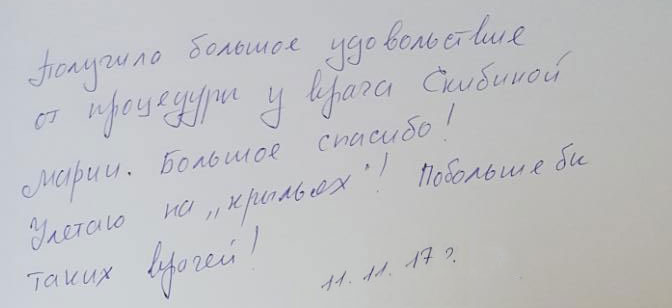 Получила большое удовольствие
от процедуры у врача Скибиной
Марии. Большое спасибо!
Улетаю на „крыльях"! Побольше бы
таких врачей!
11.11.17 г.